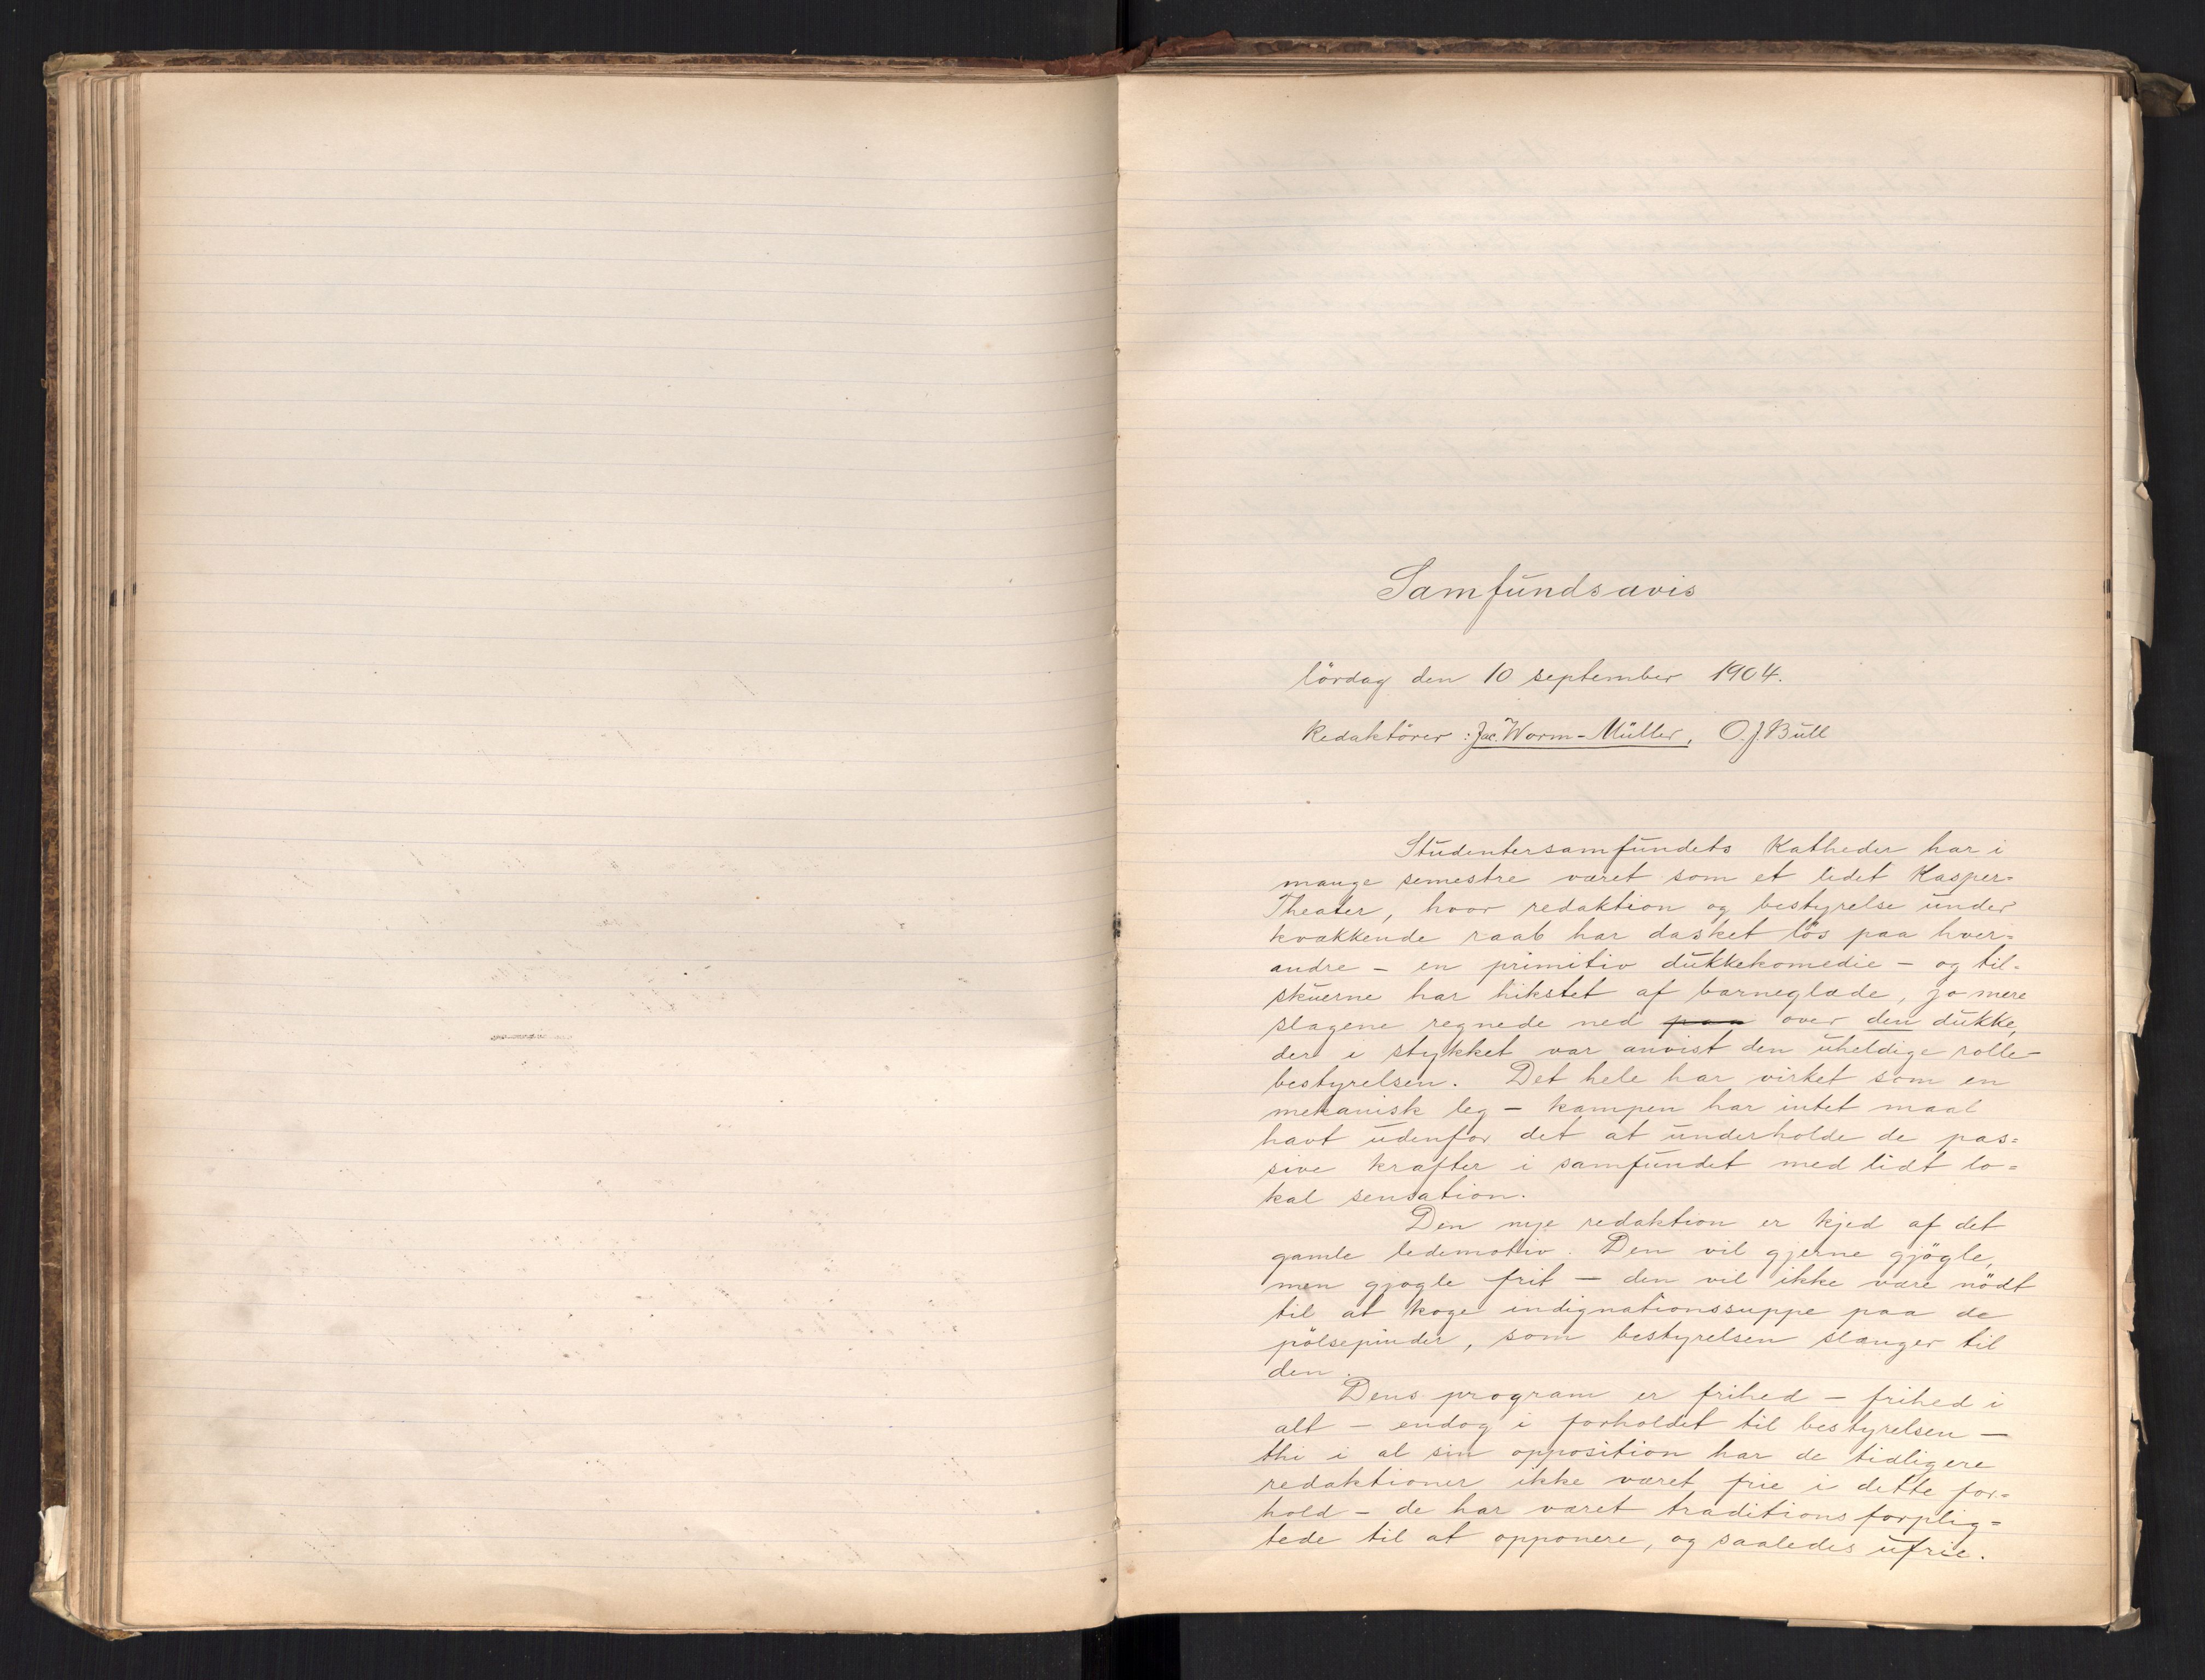 Samfundsavis
lördag den 10 september 1904.
Redaktörer: Jac. Worm-Müller, O.J. Bull
Studentersamfundets Katheder har i
mange semestre været som et lidet Kasper-
Theater, hvor redaktion og bestyrelse under
kvækkende raab har dasket lös paa hver-
andre – en primitiv dukkekomedie – og til-
skuerne har hikstet af barneglæde, jo mere
slagene regnede ned paa over den dukke,
der i stykket var anvist den uheldige rolle –
bestyrelsen. Det hele har virket som en
mekanisk leg – kampen har intet maal
havt udenfor det at underholde de pas=
sive kræfter i samfundet med lidt lo=
kal sensation.
Den nye redaktion er kjed af det
gamle ledemotiv. Den vil gjerne gjögle,
men gjøgle frit – den vil ikke være nödt
til at koge indignationssuppe paa de
pölsepinder, som bestyrelsen slænger til
den.
Dens program er frihed – frihed i
alt – endog i forholdet til bestyrelsen –
thi i al sin opposition har de tidligere
redaktioner ikke været frie i dette for=
hold – de har været traditionsforplig=
tede til at opponere, og saaledes ufrie.